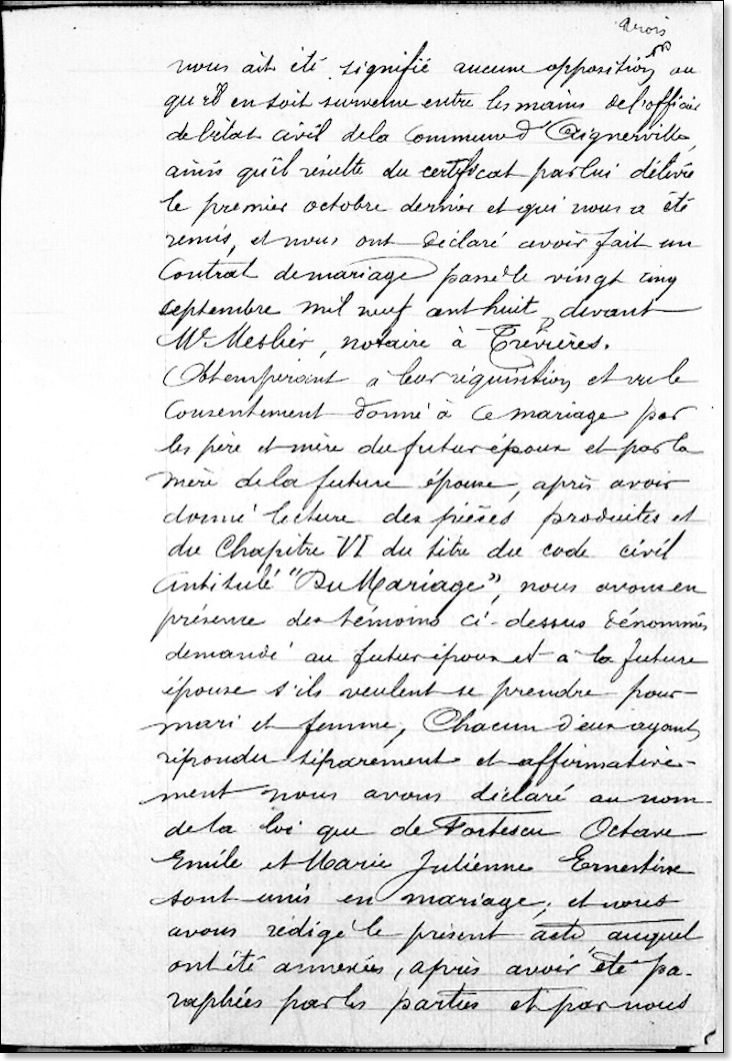 nous ait été signifié aucune opposition ou
qu'il en soit survenue entre les mains de l'officier
de l'état civil de la Commune d'Aignerville,
ainsi qu'il résulte du certificat par lui délivré
le premier octobre dernier et qui nous a été
remis, et nous ont déclaré avoir fait un
Contrat de mariage passé le vingt cinq
septembre mil neuf cent huit, devant
Me Meslier, notaire à Trévières.
Obtempérant à leur réquisition et vu le
Consentement donné à ce mariage par
les père et mère du futur époux et par la
mère de la future épouse, après avoir
donné lecture des pièces produites et
du Chapitre VI du titre du code civil
intitulé "Du Mariage", nous avons en
présence des témoins ci-dessus dénommés
demandé au futur époux et à la future
épouse s'ils veulent se prendre pour
mari et femme, Chacun d'eux ayant
répondu séparément et affirmative-
ment nous avons déclaré au nom
de la loi que de Fortescu Octave
Emile et Marie Julienne Ernestine
sont unis en mariage; et nous
avons rédigé le présent acte, auquel
ont été annexées, après avoir été pa-
raphées par les parties et par nous